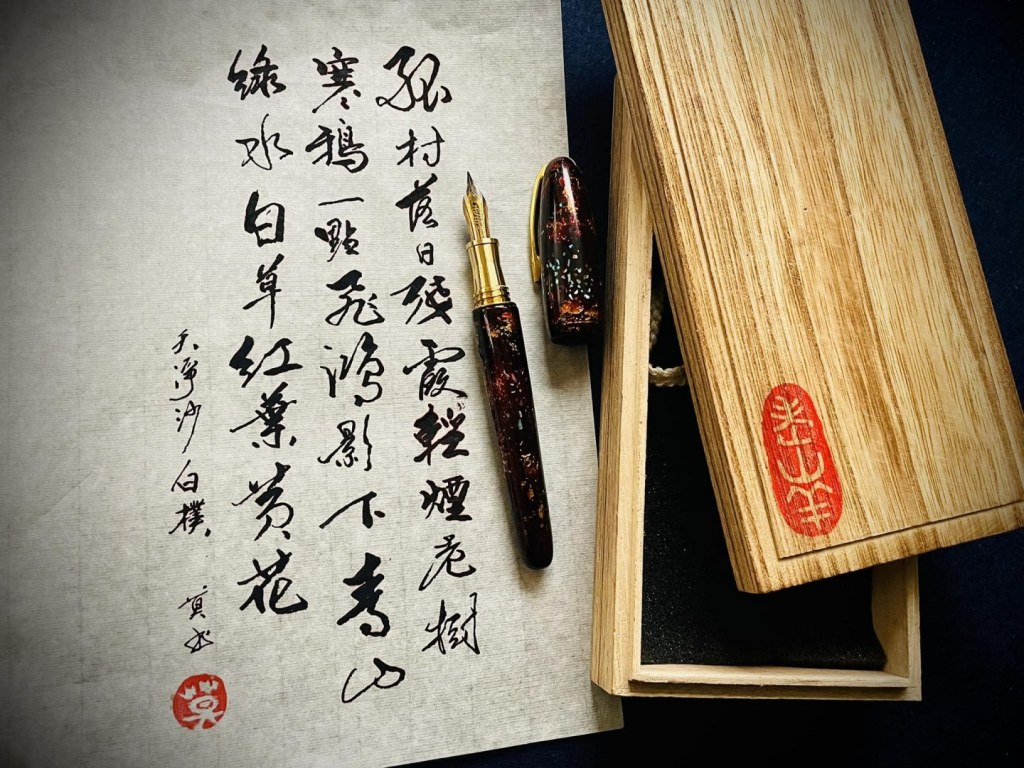 孤村落日殘霞輕煙老樹
寒鴉一點飛鴻影下青山
綠水白草紅葉黃花
天淨沙 白樸